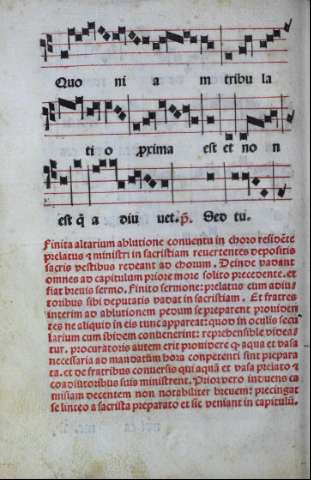 Quo ni a m tribu la
ti o ꝓxima est et no n
est q̃ a diu uet. ꝟ. Sed tu.
Finita altarium ablutione conuentu in choro residẽte
prelatus ⁊ ministri in sacristiam reuertentes depositis
sacris vestibus redeant ad chorum. Deinde vadant
omnes ad capitulum priore more solito precedente. et
fiat breuis sermo. Finito sermone: prelatus cum adiu
toribus sibi deputatis vadat in sacristiam. Et fratres
interim ad ablutionem pedum se preparent prouiden
tes ne aliquid in eis tunc appareat: quod in oculis secu
larium cum ibidem conuenerint: reprehensibile videa
tur. procuratoris autem erit prouidere ꝙ aqua et vasa
necessaria ad mandatum hora competenti sint prepara
ta. et de fratribus conuersis qui aquã et vasa prelato ⁊
coadiutoribus suis ministrent. Prior vero induens ca
misiam decentem non notabiliter breuem: precingat
se linteo a sacrista preparato et sic veniant in capitulũ.